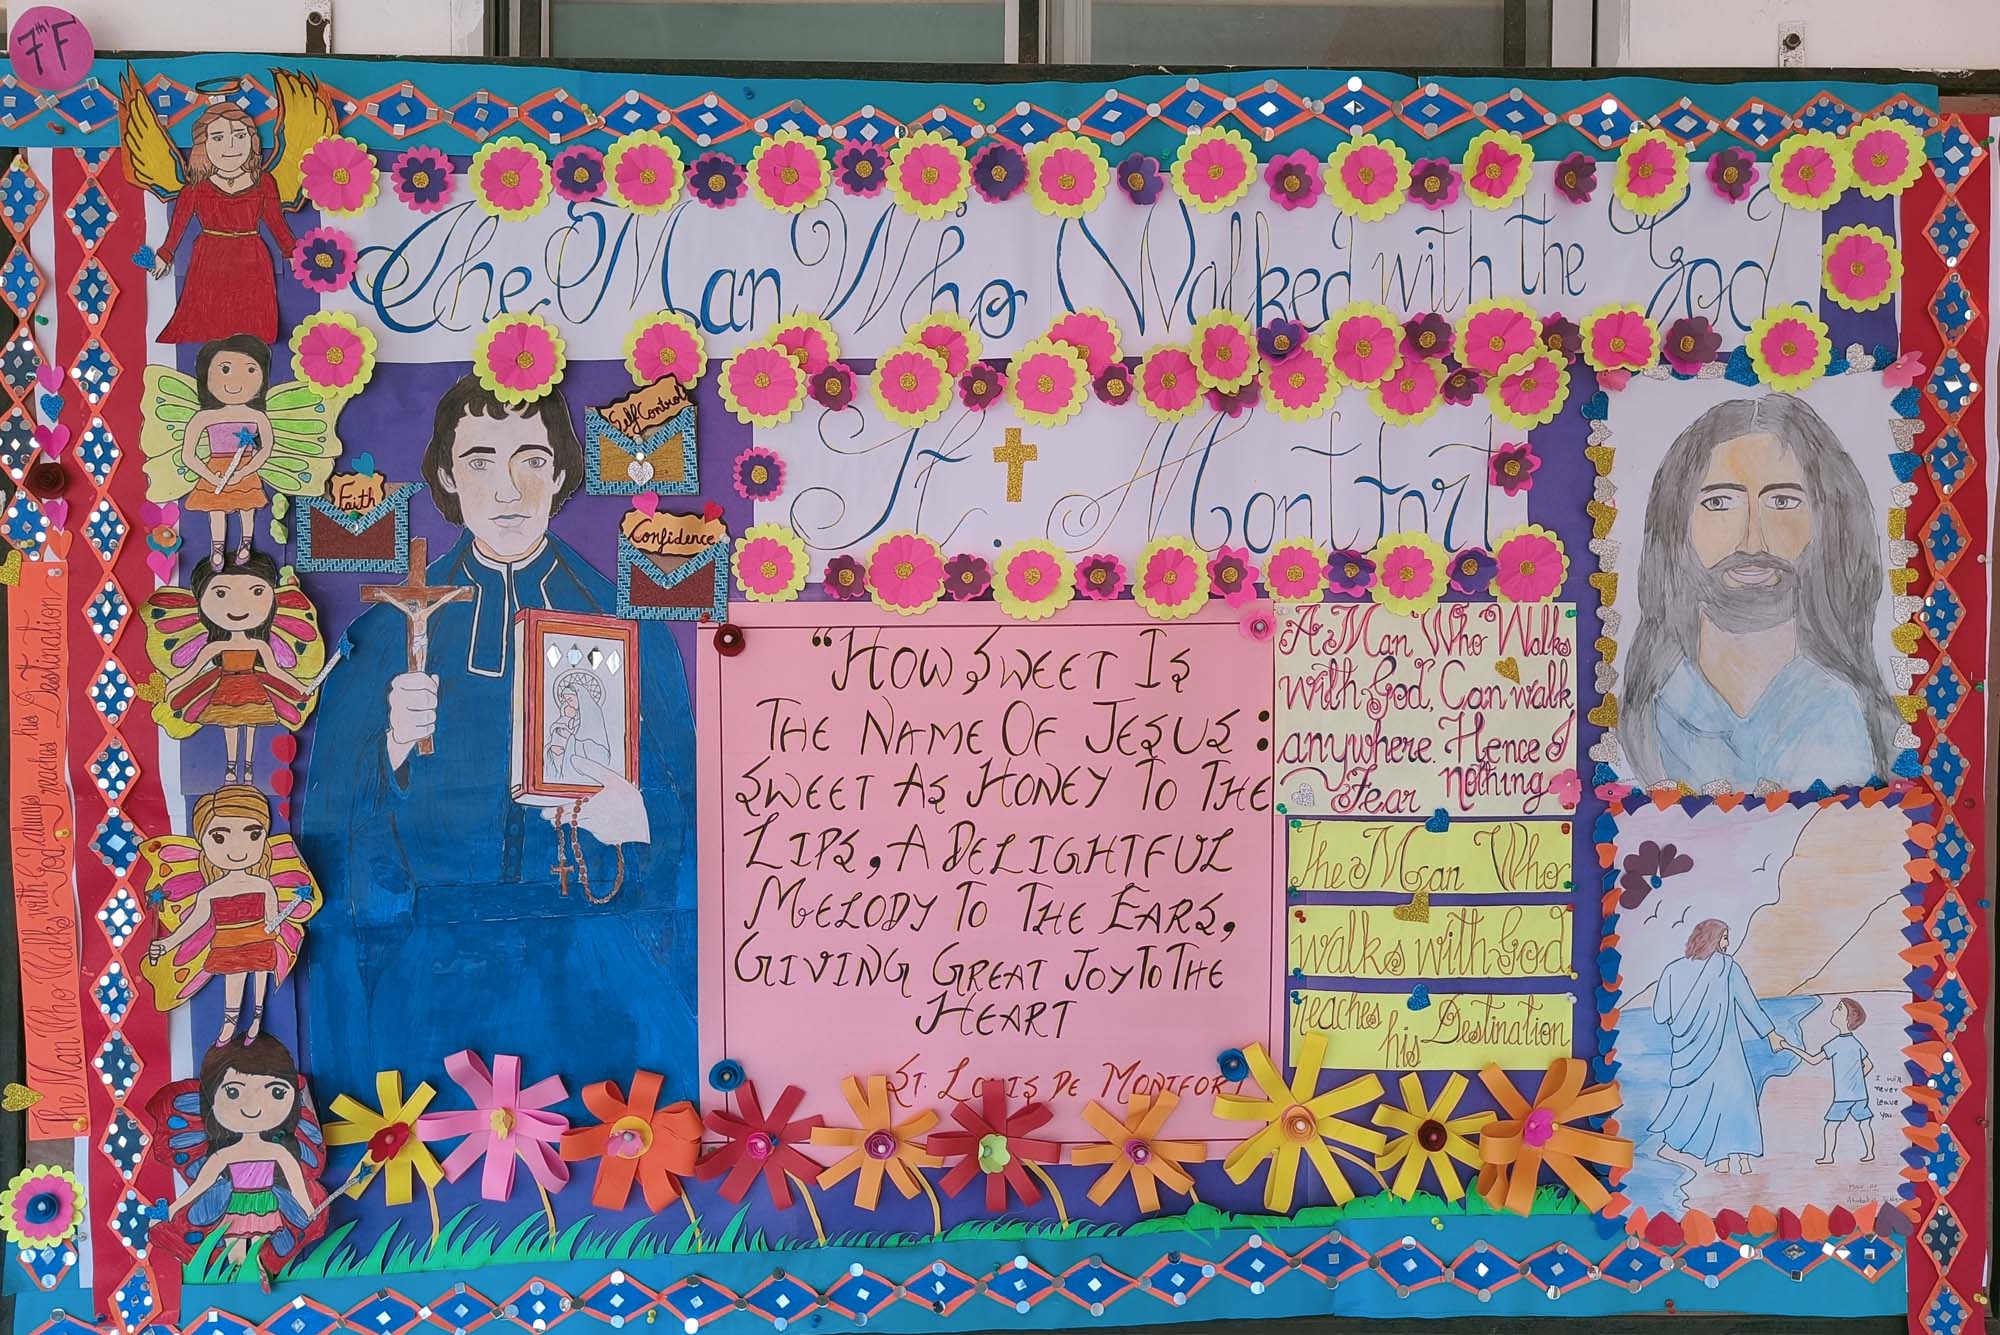 7th 'F'
The Man Who Walked with the God
St. Montfort
Self Control
Faith
Confidence
"How Sweet Is
The Name Of Jesus :
Sweet As Honey To The
Lips, A Delightful
Melody To The Ears,
Giving Great Joy To The
Heart
St. Louis De Montfort
A Man Who Walks
with God, Can walk
anywhere. Hence I
Fear Nothing
The Man Who
walks with God
reaches his Destination
The Man Who Walks with God always reaches his Destination.
I will
never
leave
you